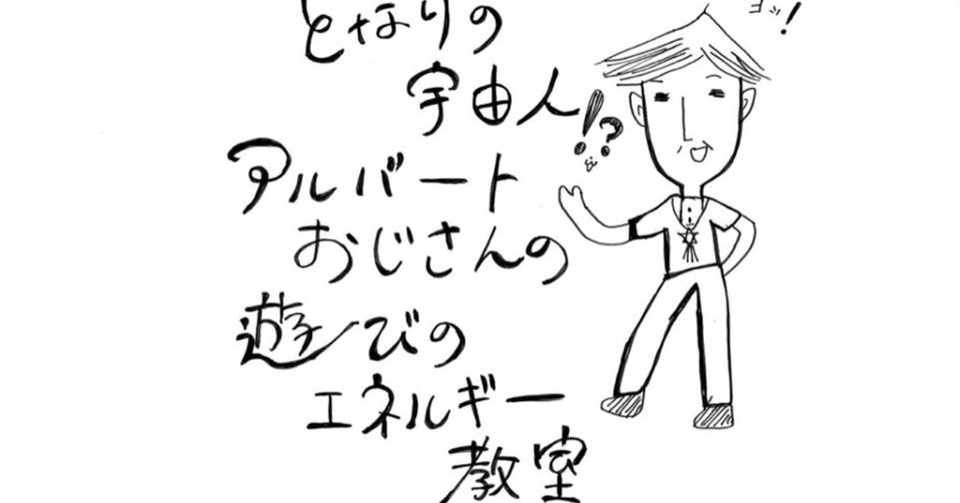 となりの
宇宙人
アルバート
おじさんの
遊びの
エネルギー
教室
!?
ヨッ!